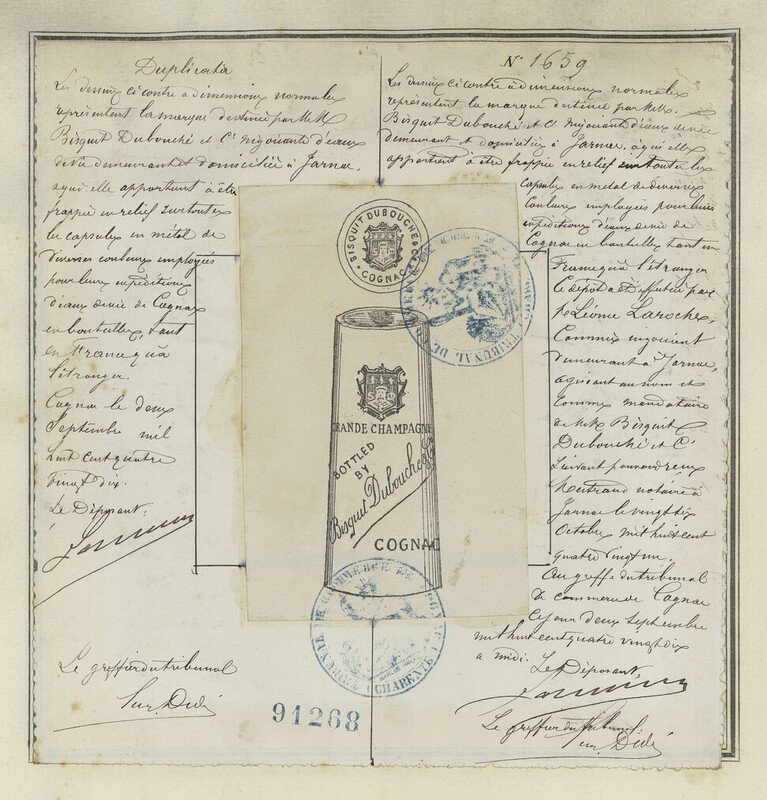 Duplicata
Les dessins ci contre à dimensions normales
représentent la marque destinée par MM
Bisquit Dubouché et Cie négociants d'eaux
de vie demeurant et domiciliés à Jarnac,
à qui elle appartient à être
frappée en relief sur toutes
les capsules en métal de
diverses couleurs employées
pour leurs expéditions
d'eaux de vie de Cognac
en bouteilles, tant
en France qu'à
l'étranger.
Cognac le deux
Septembre mil
huit cent quatre
vingt dix.
Le Déposant:
Le greffier du tribunal
BISQUIT DUBOUCHÉ & Co
COGNAC
GRANDE CHAMPAGNE
BOTTLED
BY
Bisquit Dubouché & Co
COGNAC
TRIBUNAL DE
TRIBUNAL DE COMMERCE
CHARENTE
91268
No 1659
Les dessins ci contre à dimensions normales
représentent la marque destinée par MM.
Bisquit Dubouché et Cie négociants d'eaux de vie
demeurant et domiciliés à Jarnac, à qui elle
appartient à être frappée en relief sur toutes les
capsules en métal de diverses
couleurs employées pour leurs
expéditions d'eaux de vie de
Cognac en bouteilles tant en
France qu'à l'étranger
Le dépôt a été effectué par
Mr Léonce Laroche,
Commis négociant
demeurant à Jarnac,
agissant au nom et
comme mandataire
de MM Bisquit
Dubouché et Cie
suivant pouvoir reçu
Mertrand notaire à
Jarnac le vingt six
Octobre mil huit cent
quatre vingt un.
Au greffe du tribunal
de commerce de Cognac
ce jour deux septembre
mil huit cent quatre vingt dix
à midi.
Le Déposant,
Le greffier du tribunal: